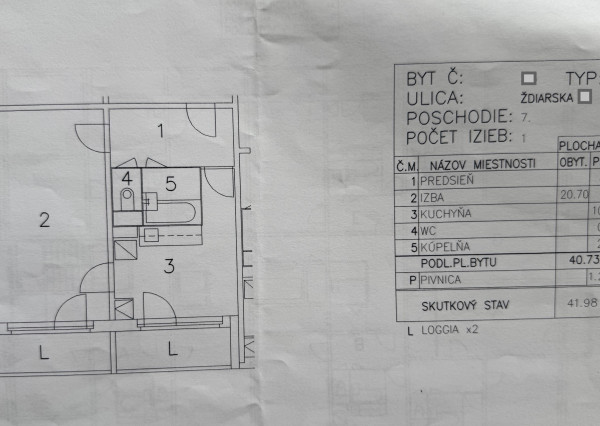 BYT Č: TYP:
ULICA: ŽDIARSKA
POSCHODIE: 7.
POČET IZIEB: 1
PLOCHA
Č.M. NÁZOV MIESTNOSTI OBYT. P
1 PREDSIEŇ
2 IZBA 20.70
3 KUCHYŇA 10
4 WC
5 KÚPEĽŇA 2
PODL.PL.BYTU 40.73
P PIVNICA 1.2
SKUTKOVÝ STAV 41.98
L LOGGIA x2
1
4
5
2
3
L
L